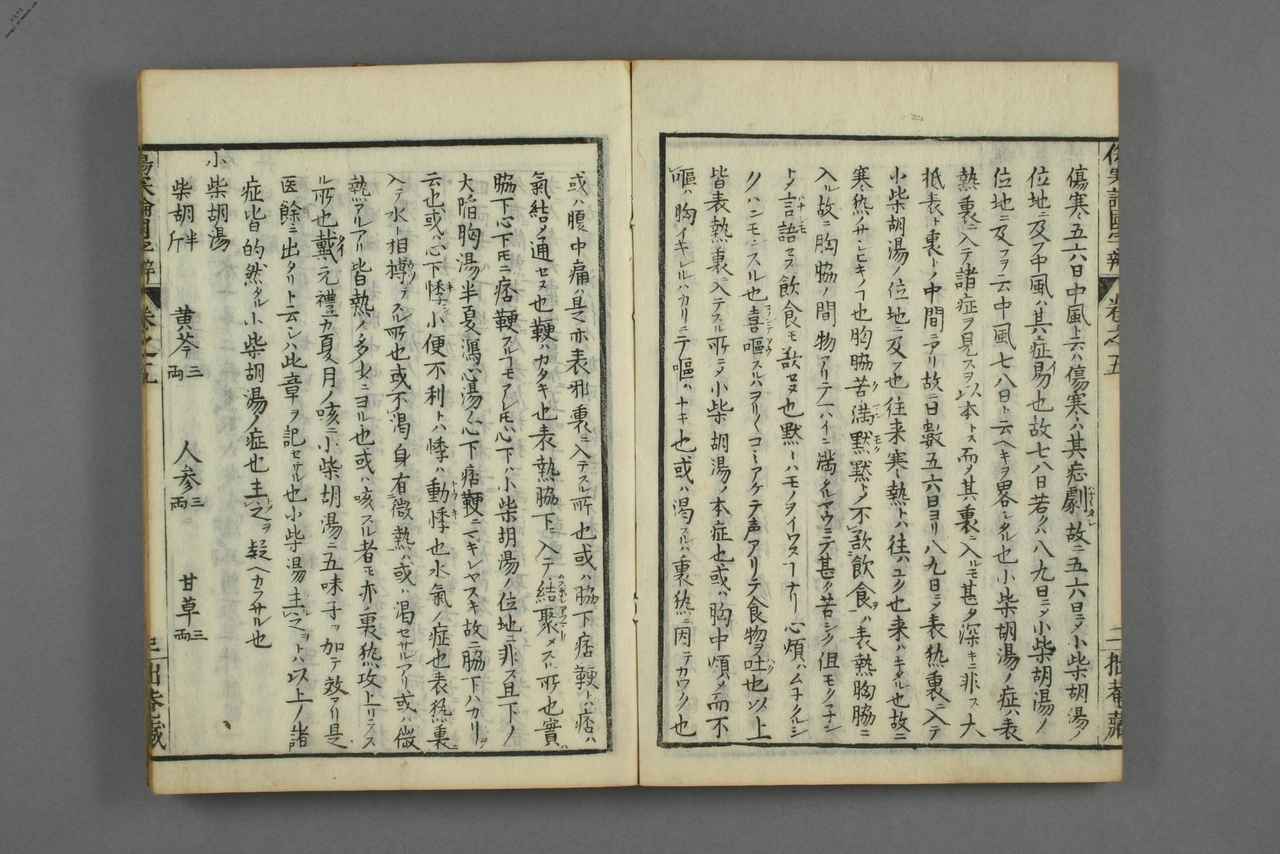 傷寒五六日中風ト云ハ傷寒ハ其忩劇故ニ五六日ニメ小柴胡湯ノ
位地ニ及フ中風ハ其症易也故七八日若クハ八九日ニメ小柴胡湯ノ
位地ニ及フヲ云中風七八日ト云ヘキヲ畧シタル也小柴胡湯ノ症ハ表
熱裏ニ入テ諸症ヲ見スヲ以本トス而メ其裏ニ入ルモ甚タ深キニ非ス大
抵表ト裏トノ中間ニアリ故ニ日數五六日ヨリ八九日ニメ表熱裏ニ入テ
小柴胡湯ノ位地ニ及フ也往来寒ト熱トハ往ハユク也来ハキタル也故ニ
寒熱サシヒキノヿ也胸脇苦満黙黙トメ不欲飲食ハ表熱胸脇ニ
入ル故ニ胸脇ノ間物アリテ一ハイニ満タルヤウニテ甚タ苦シク但モクネン
トメ言語セス飲食モ欲セヌ也黙一ハモノヲイワヌヿナリ心煩ハムナクルシ
クハンモンスル也喜嘔スルハヲリ〱コミアケテ声アリテ食物ヲ吐也以上
皆表熱裏ニ入テスル所ニメ小柴胡湯ノ本症也或ハ胸中煩メ而不
嘔ハ胸イキレルハカリニテ嘔ハナキ也或ハ渇スルハ裏熱ニ因テカワクノ也
或ハ腹中痛ハ是亦表邪裏ニ入テスル所也或ハ脇下痞鞕トハ痞ハ
氣結メ通セス也鞕ハカタキ也表熱脇下ニ入テ結聚メスル所也實ハ
脇下心下モニ痞鞕スルヿモアレモ心下ハ小柴胡湯ノ位地ニ非ス且下ノ
大陷胸湯半夏瀉心湯ノ心下痞鞕ニマキレヤスキ故ニ脇下ハカリヲ
云也或ハ心下悸小便不利トハ悸ハ動悸也水氣ノ症也表熱裏ニ
入テ水ト相搏テスル所也或不渇身有微熱ハ或ハ渇セサルアリ或ハ微
熱アルアリ皆熱ノ多少ニヨル也或ハ咳スル者モ亦裏熱攻上リテス
ル所也戴元禮カ夏月ノ咳ニ小柴胡湯ニ五味子ヲ加テ效アリ是
医餘ニ出タリト云シハ此章ヲ記セサル也小柴湯主之ヲトハ以上ノ諸
症皆的然タル小柴胡湯ノ症也主之ヲ疑ヘカラサル也
小柴胡湯
柴胡半斤　黄芩三両　人参三両　甘草三両